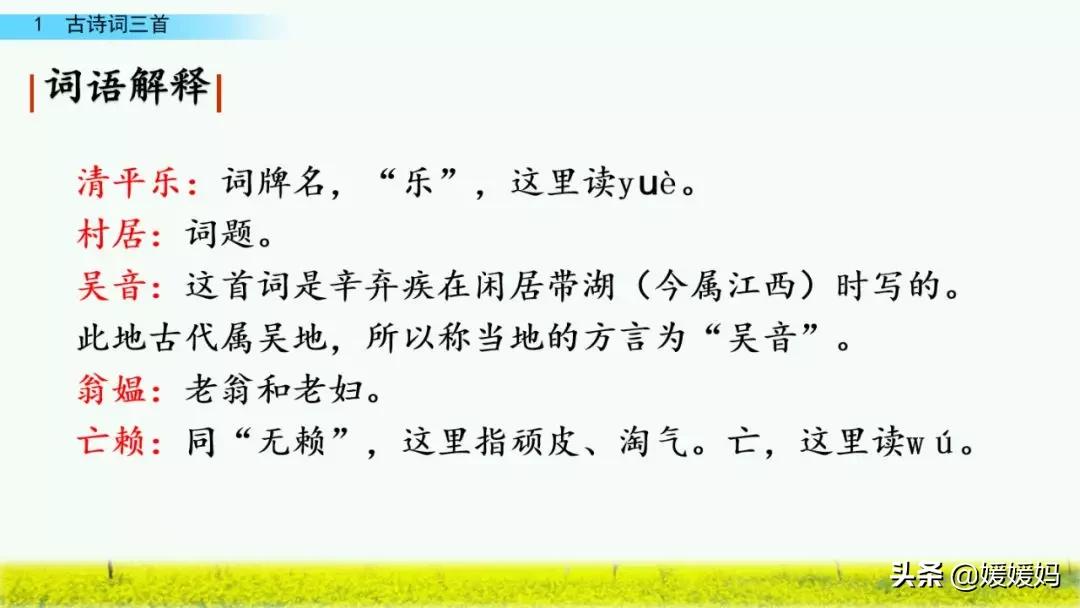 1 古诗词三首
词语解释
清平乐：词牌名，“乐”，这里读yuè。
村居：词题。
吴音：这首词是辛弃疾在闲居带湖（今属江西）时写的。
此地古代属吴地，所以称当地的方言为“吴音”。
翁媪：老翁和老妇。
亡赖：同“无赖”，这里指顽皮、淘气。亡，这里读wú。
头条 @媛媛妈